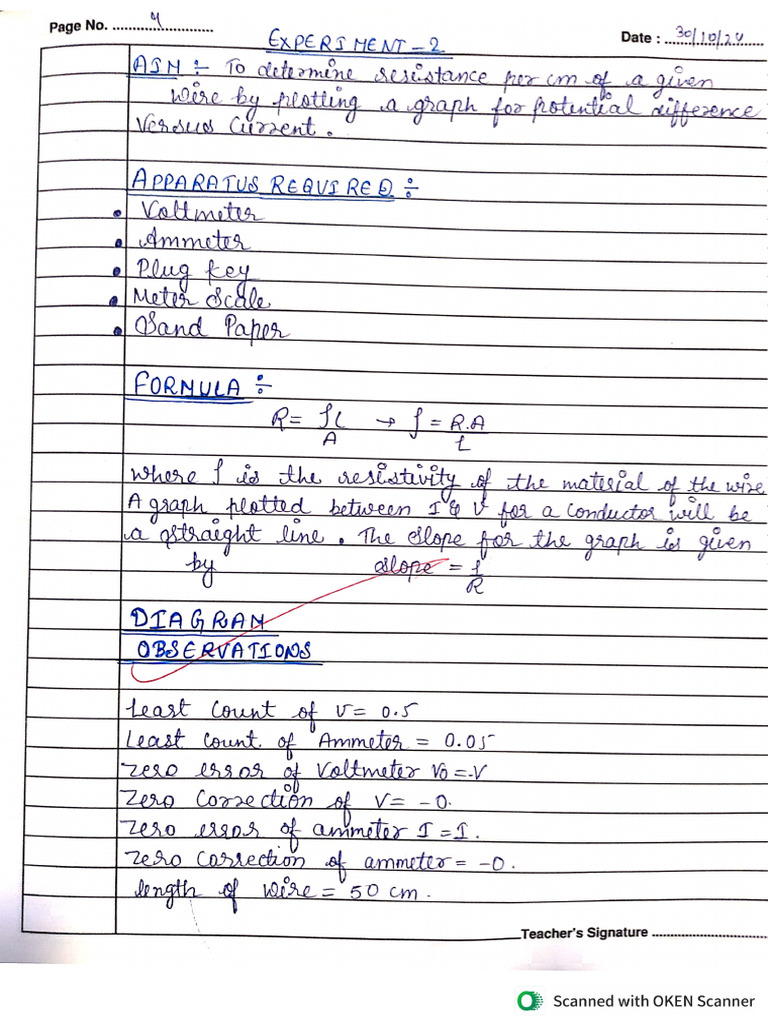 Page No. 4
Date : 30/10/24
EXPERIMENT-2
AIM :- To determine resistance per cm of a given
wire by plotting a graph for potential difference
Versus Current.
APPARATUS REQUIRED :-
• Voltmeter
• Ammeter
• Plug key
• Meter Scale
• Sand Paper
FORMULA :-
R = ρl/A → ρ = R.A/L
where ρ is the resistivity of the material of the wire
A graph plotted between I & V for a conductor will be
a straight line. The slope for the graph is given
by slope = 1/R
DIAGRAM
OBSERVATIONS
Least Count of V = 0.5
Least Count of Ammeter = 0.05
Zero error of Voltmeter V0 = -V
Zero Correction of V = -0.
Zero error of ammeter I = I.
Zero correction of ammeter = -0.
length of wire = 50 cm.
Teacher's Signature
Scanned with OKEN Scanner